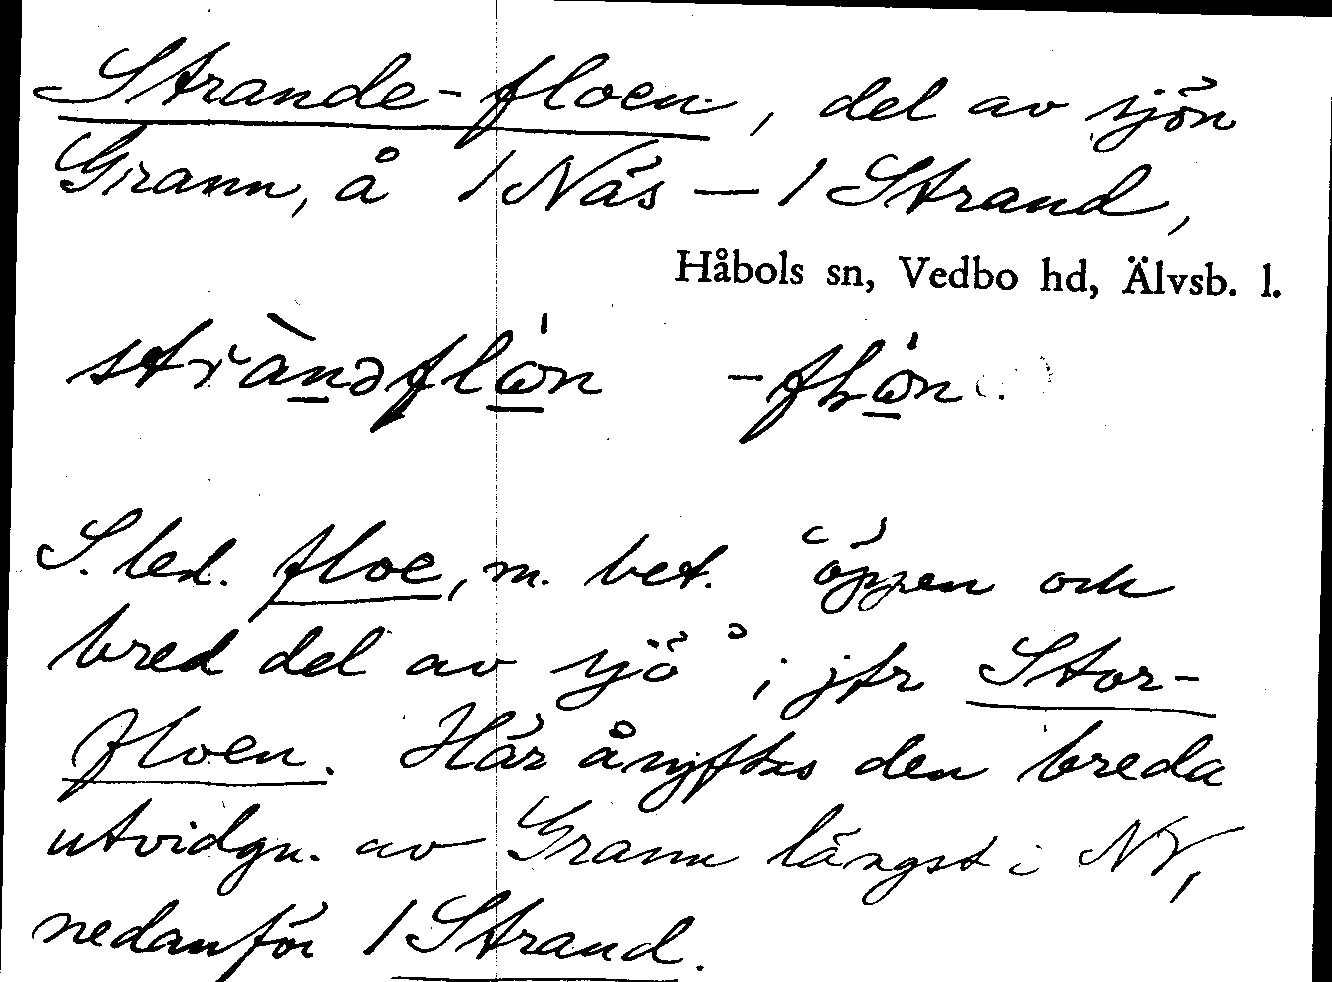 Strande-floen, del av sjön
Grann, å 1 Näs — 1 Strand,
Håbols sn, Vedbo hd, Älvsb. l.
S. led. floe, m. bet. "öppen och
bred del av sjö"; jfr Stor-
floen. Här åsyftas den breda
utvidgn. av Grann längst i NV,
nedanför 1 Strand.